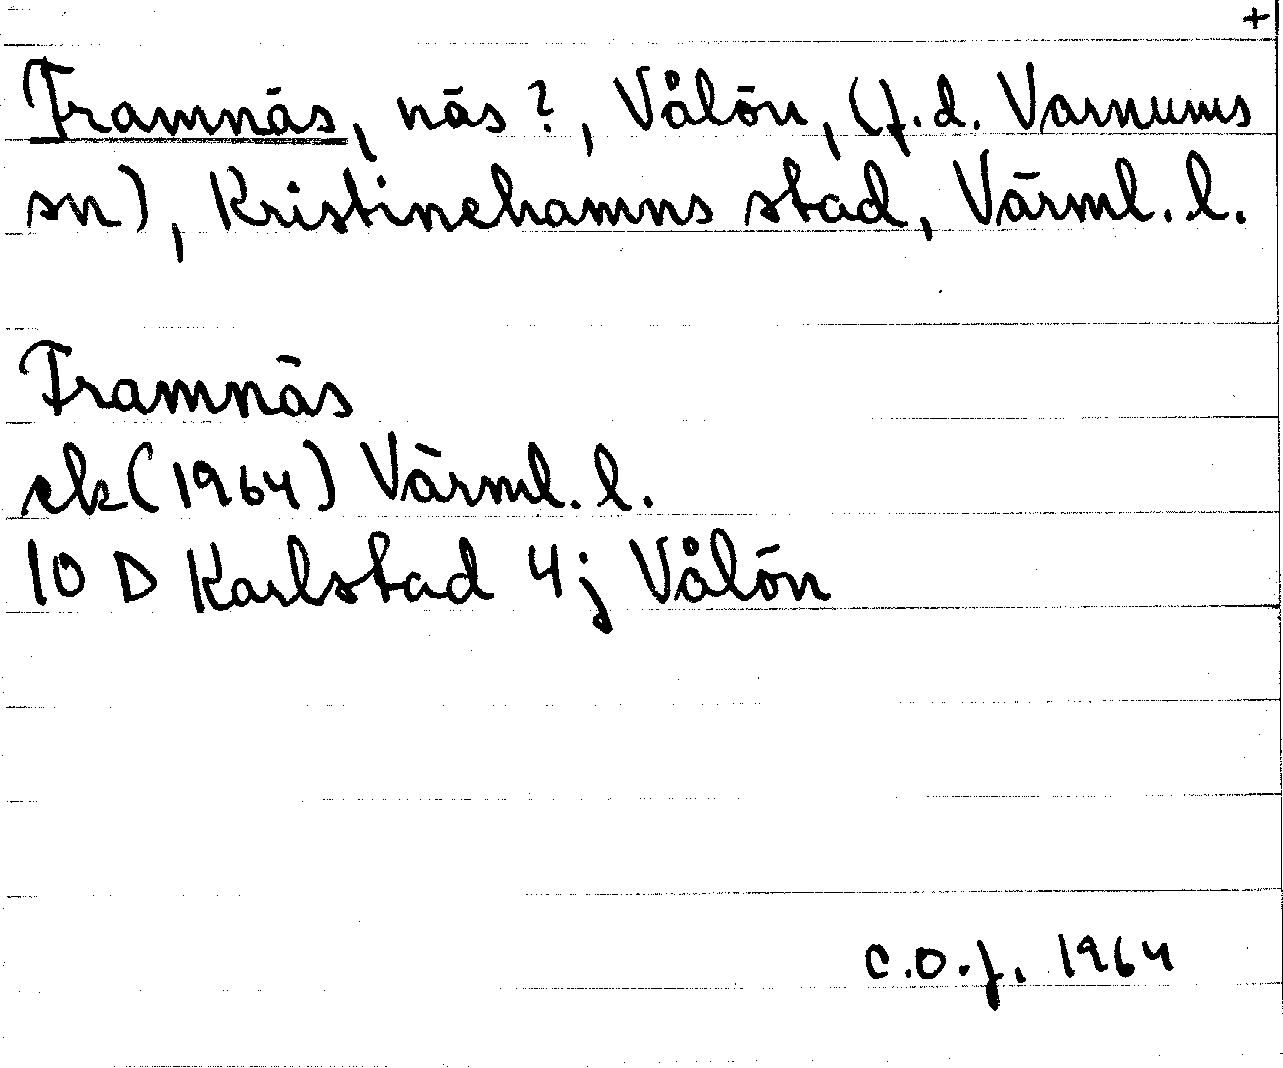 +
Framnäs, näs?, Vålön, (f.d. Varnums
sn), Kristinehamns stad, Värml. l.
Framnäs
ek (1964) Värml. l.
10 D Karlstad 4j Vålön
C.O.f. 1964